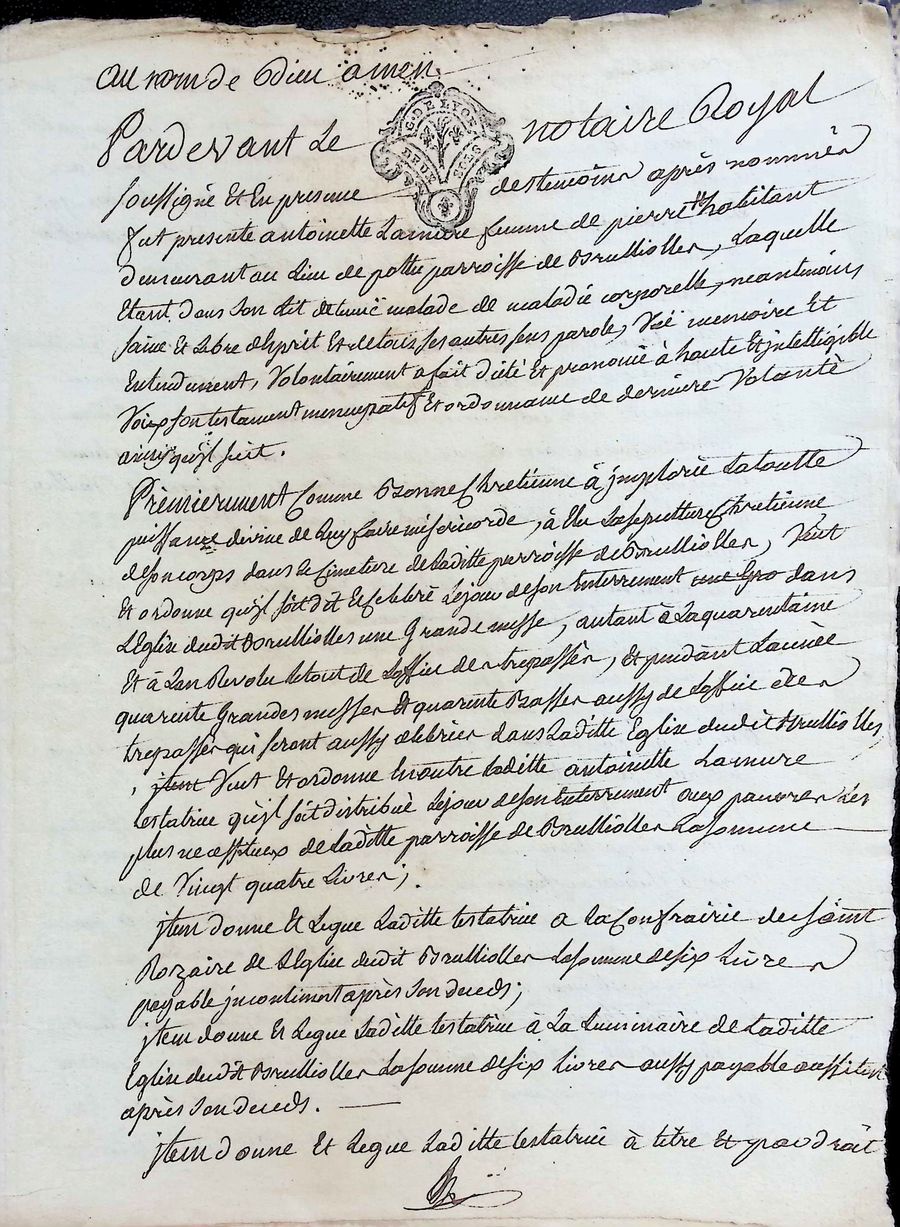 au nom de Dieu amen
G. DE LYON
DEUX SOLS
Pardevant Le notaire Royal
soussigné Et En presence des temoins après nommés
fut presente antoinette Lamure femme de pierre habitant
demeurant au Lieu de pottu parroisse de Brulliolles, Laquelle
Etant dans son lit detenue malade de maladie corporelle, neantmoins
saine Et Libre desprit Et de tous ses autres sens parole, Vüe memoire Et
Entendement, Volontairement a fait dicté Et prononcé à haute Et jntelligible
Voix son testament nuncupatif Et ordonnance de derniere Volonté
ainsy quÿl suit.
Premierement Comme Bonne Chretienne à jmploré La toutte
puissance divine de Luy faire misericorde, à Elu La sepulture Chretienne
de son corps dans Le Cimetiere de Laditte parroisse de Brulliolles, Veut
Et ordonne quÿl soit dit Et Celebré Le jour de son Enterrement une Gro dans
L'Eglise dudit Brulliolles une Grande messe, autant à La quarentaine
Et à Lan Revolu Le tout de Loffice des trepassés, Et pendant Lannée
quarente Grandes messes Et quarente Basses aussy de Loffice des
trepasses qui seront aussy celebrées dans Laditte Eglise dudit Brulliolles
jtem Veut Et ordonne En outre Laditte antoinette Lamure
testatrice quÿl soit distribué Le jour de son Enterrement aux pauvres Les
plus necessiteux de Laditte parroisse de Brulliolles La somme
de Vingt quatre Livres;
jtem donne Et Legue Laditte testatrice a La Confrairie du saint
Rozaire de LEglise dudit Brulliolles La somme de six Livres
payable jncontinent après son decès;
jtem donne Et Legue Laditte testatrice à La Luminaire de Laditte
Eglise dudit Brulliolles La somme de six Livres aussy payable aussitot
après son deceds.
jtem donne Et Legue Laditte testatrice à titre Et par droit